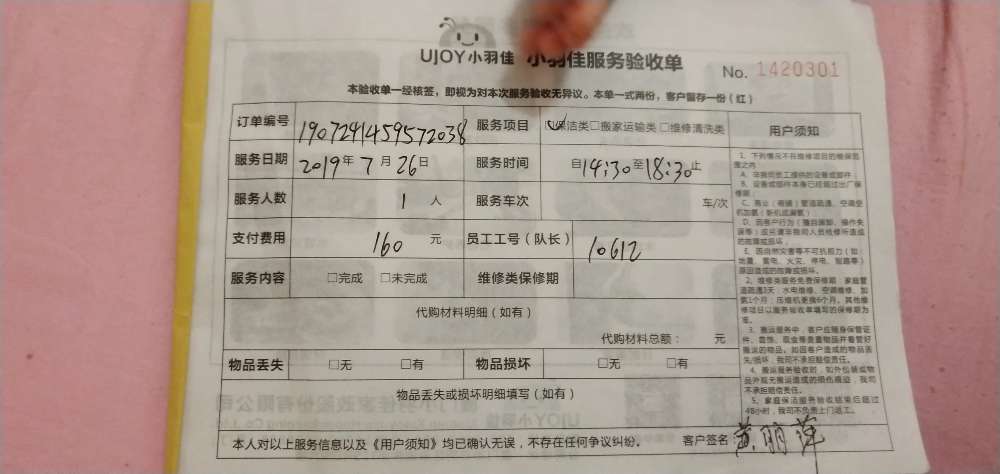 UJOY小羽佳 小羽佳服务验收单
No. 1420301
本验收单一经核签，即视为对本次服务验收无异议。本单一式两份，客户留存一份（红）
订单编号 1907291459572038 服务项目 ☑保洁类□搬家运输类□维修清洗类
服务日期 2019年7月26日 服务时间 自14:30至18:30止
服务人数 1人 服务车次 车/次
支付费用 160元 员工工号（队长） 10612
服务内容 □完成 □未完成 维修类保修期
代购材料明细（如有）
代购材料总额： 元
物品丢失 □无 □有 物品损坏 □无 □有
物品丢失或损坏明细填写（如有）
本人对以上服务信息以及《用户须知》均已确认无误，不存在任何争议纠纷。 客户签名：黄丽萍
用户须知
1、下列情况不在维修项目的维保范
围之内
A、非我司员工提供的设备或部件；
B、设备或部件本身已经超过出厂保
修期；
D、因客户行为（擅自拆卸、操作失
误等）或另请非我司人员检修所造成
的故障或损坏；
E、因自然灾害等不可抗拒力（如：
地震、雷电、火灾、停电、耐磨等）
原因造成的故障或损坏。
2、维修类服务免费保修期：家庭管
道疏通3天，水电维修、空调维修、加
氨1个月；压缩机更换6个月。其他维
修项目以服务验收单填写的保修期为
准。
3、搬运服务中，客户应随身保管证
件、首饰、现金等贵重物品并看管好
搬运的物品。如因客户造成的物品丢
失/损坏，我司不承担赔偿责任。
4、搬运服务验收时，如外包装或物
品外观无搬运造成的损伤痕迹，我司
不承担赔偿责任。
5、家庭保洁服务验收结束后超过
48小时，我司不负责上门返工。